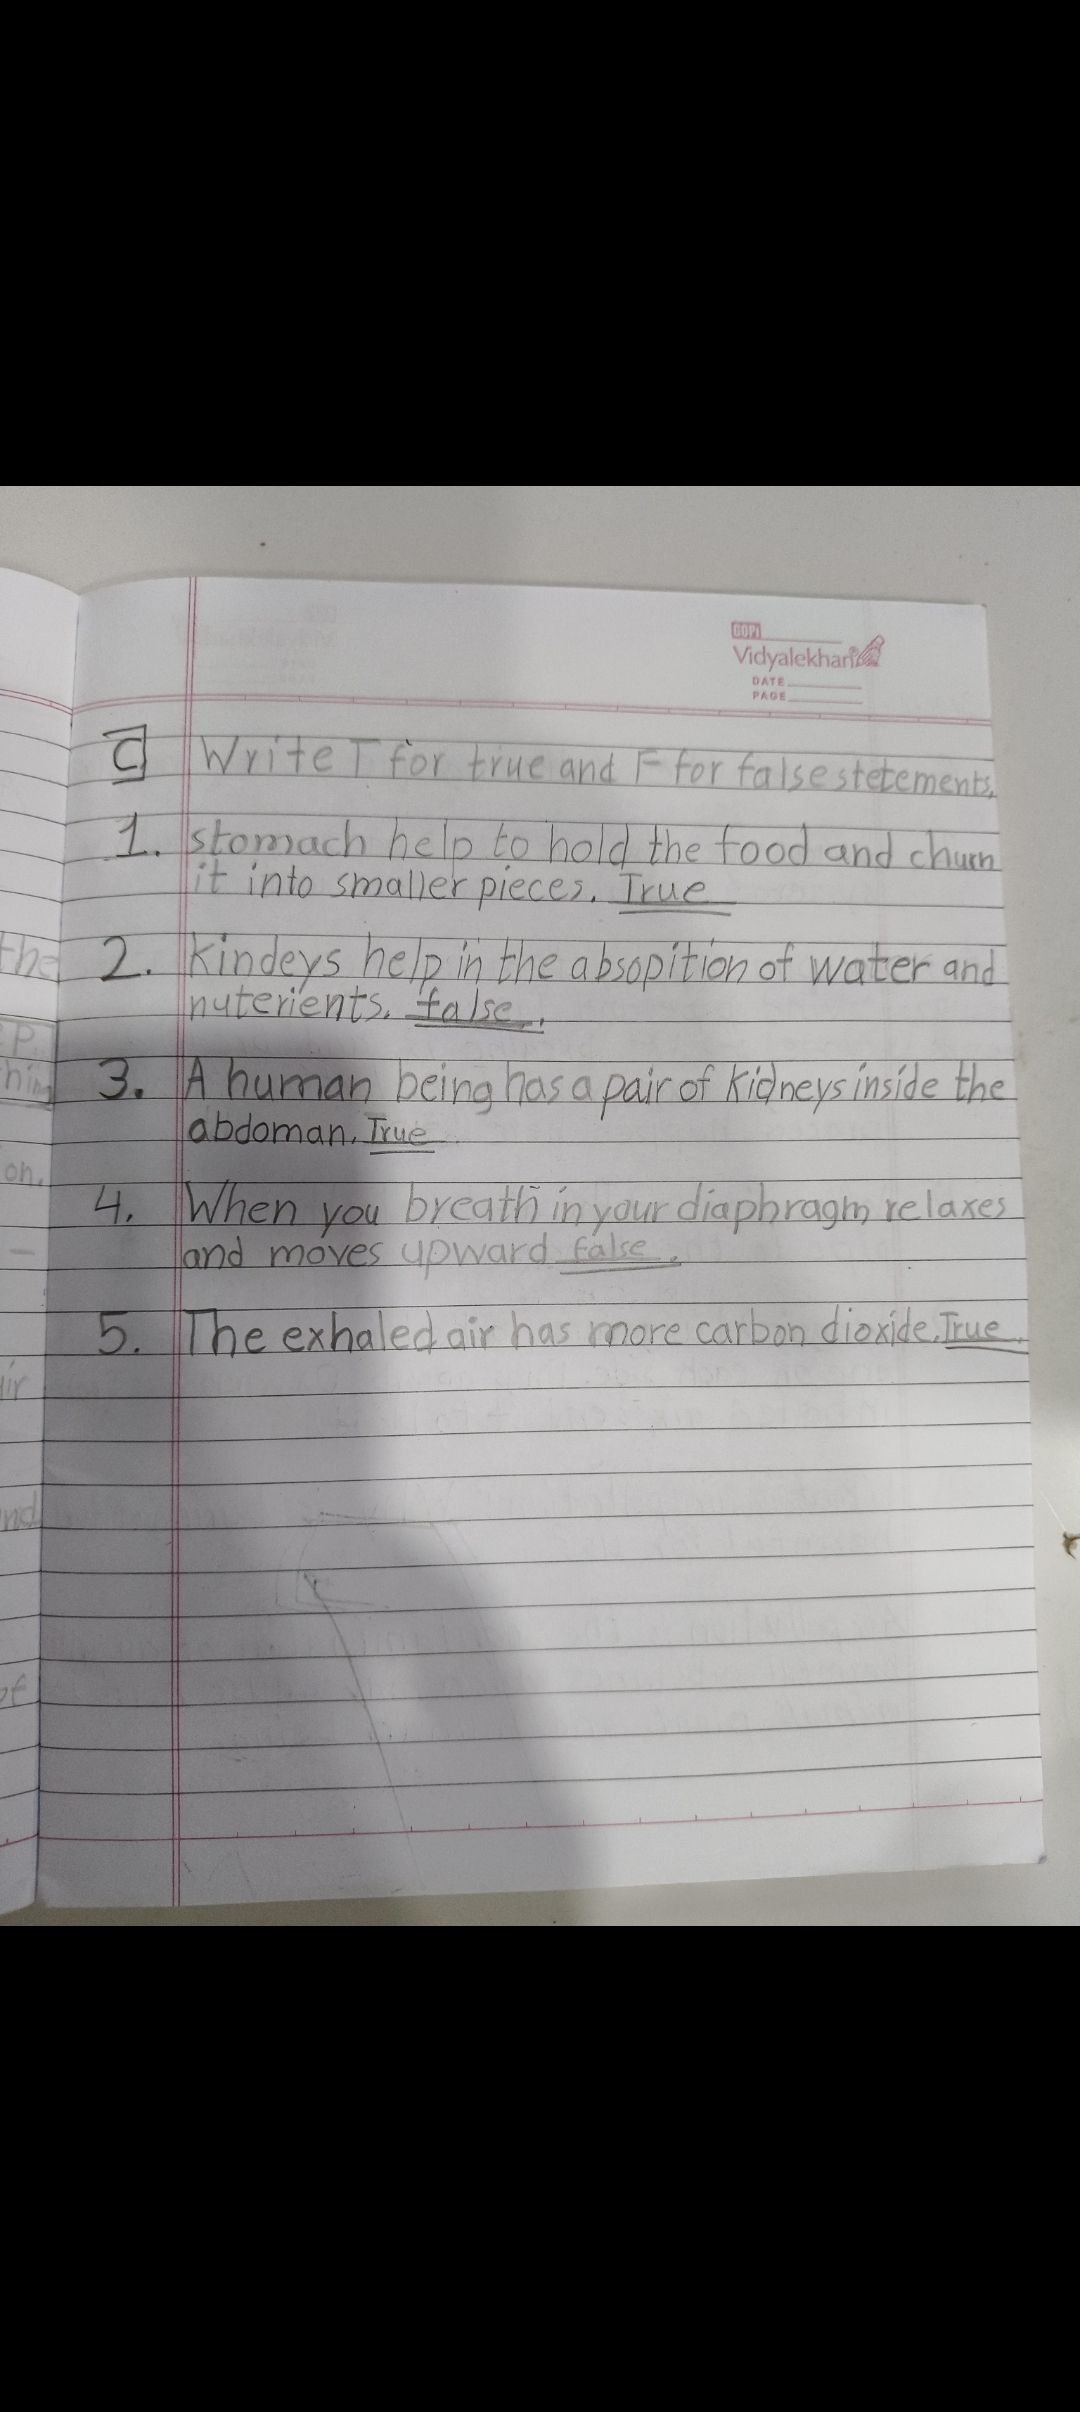 GOPI
Vidyalekhan
DATE
PAGE
C Write T for true and F for false stetements.
1. stomach help to hold the food and churn
it into smaller pieces. True
the
2. Kindeys help in the absopition of water and
nuterients. false.
3. A human being has a pair of kidneys inside the
abdoman. True
on.
4. When you breath in your diaphragm relaxes
and moves upward false.
5. The exhaled air has more carbon dioxide. True.
of